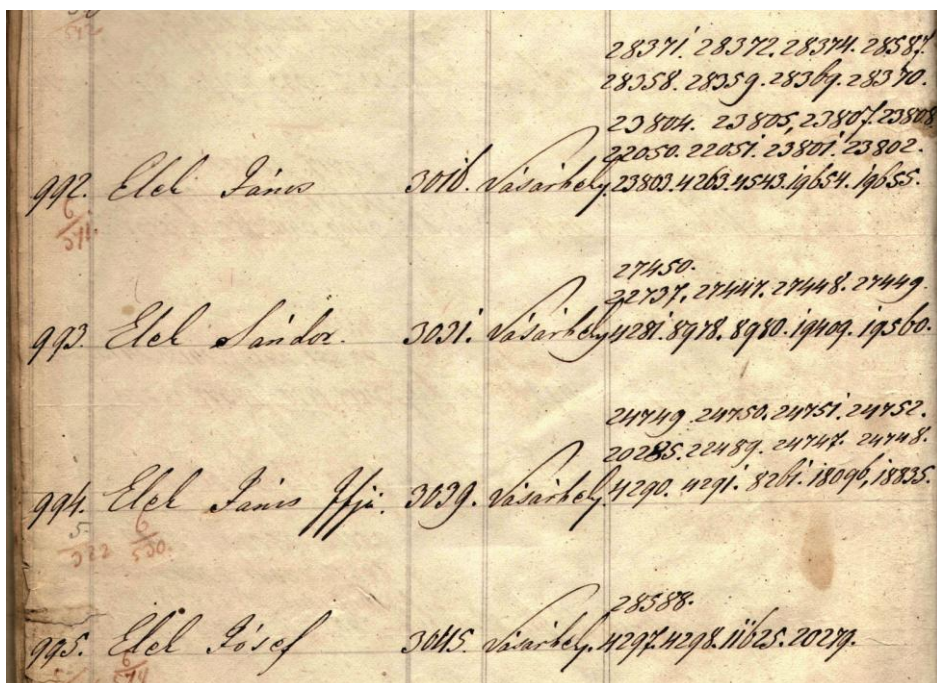 28371. 28372. 28374. 28587.
28358. 28359. 28369. 28370.
23804. 23805, 23807. 23808
22050. 22051. 23801. 23802.
992. Elek János 3016. Vásárhely. 23803. 4263. 4543. 19654. 19655.
6
541.
27450.
22737, 27447. 27448. 27449.
993. Elek Sándor. 3031. Vásárhely. 4281. 8978. 8980. 19409. 19560.
24749. 24750. 24751. 24752.
20285. 22489. 24747. 24748.
994. Elek János Ifjú. 3039. Vásárhely. 4290. 4291. 8261. 18096, 18835.
5 6
322 530.
28588.
995. Elek Jósef 3045. Vásárhely. 4297. 4298. 11625. 20279.
6